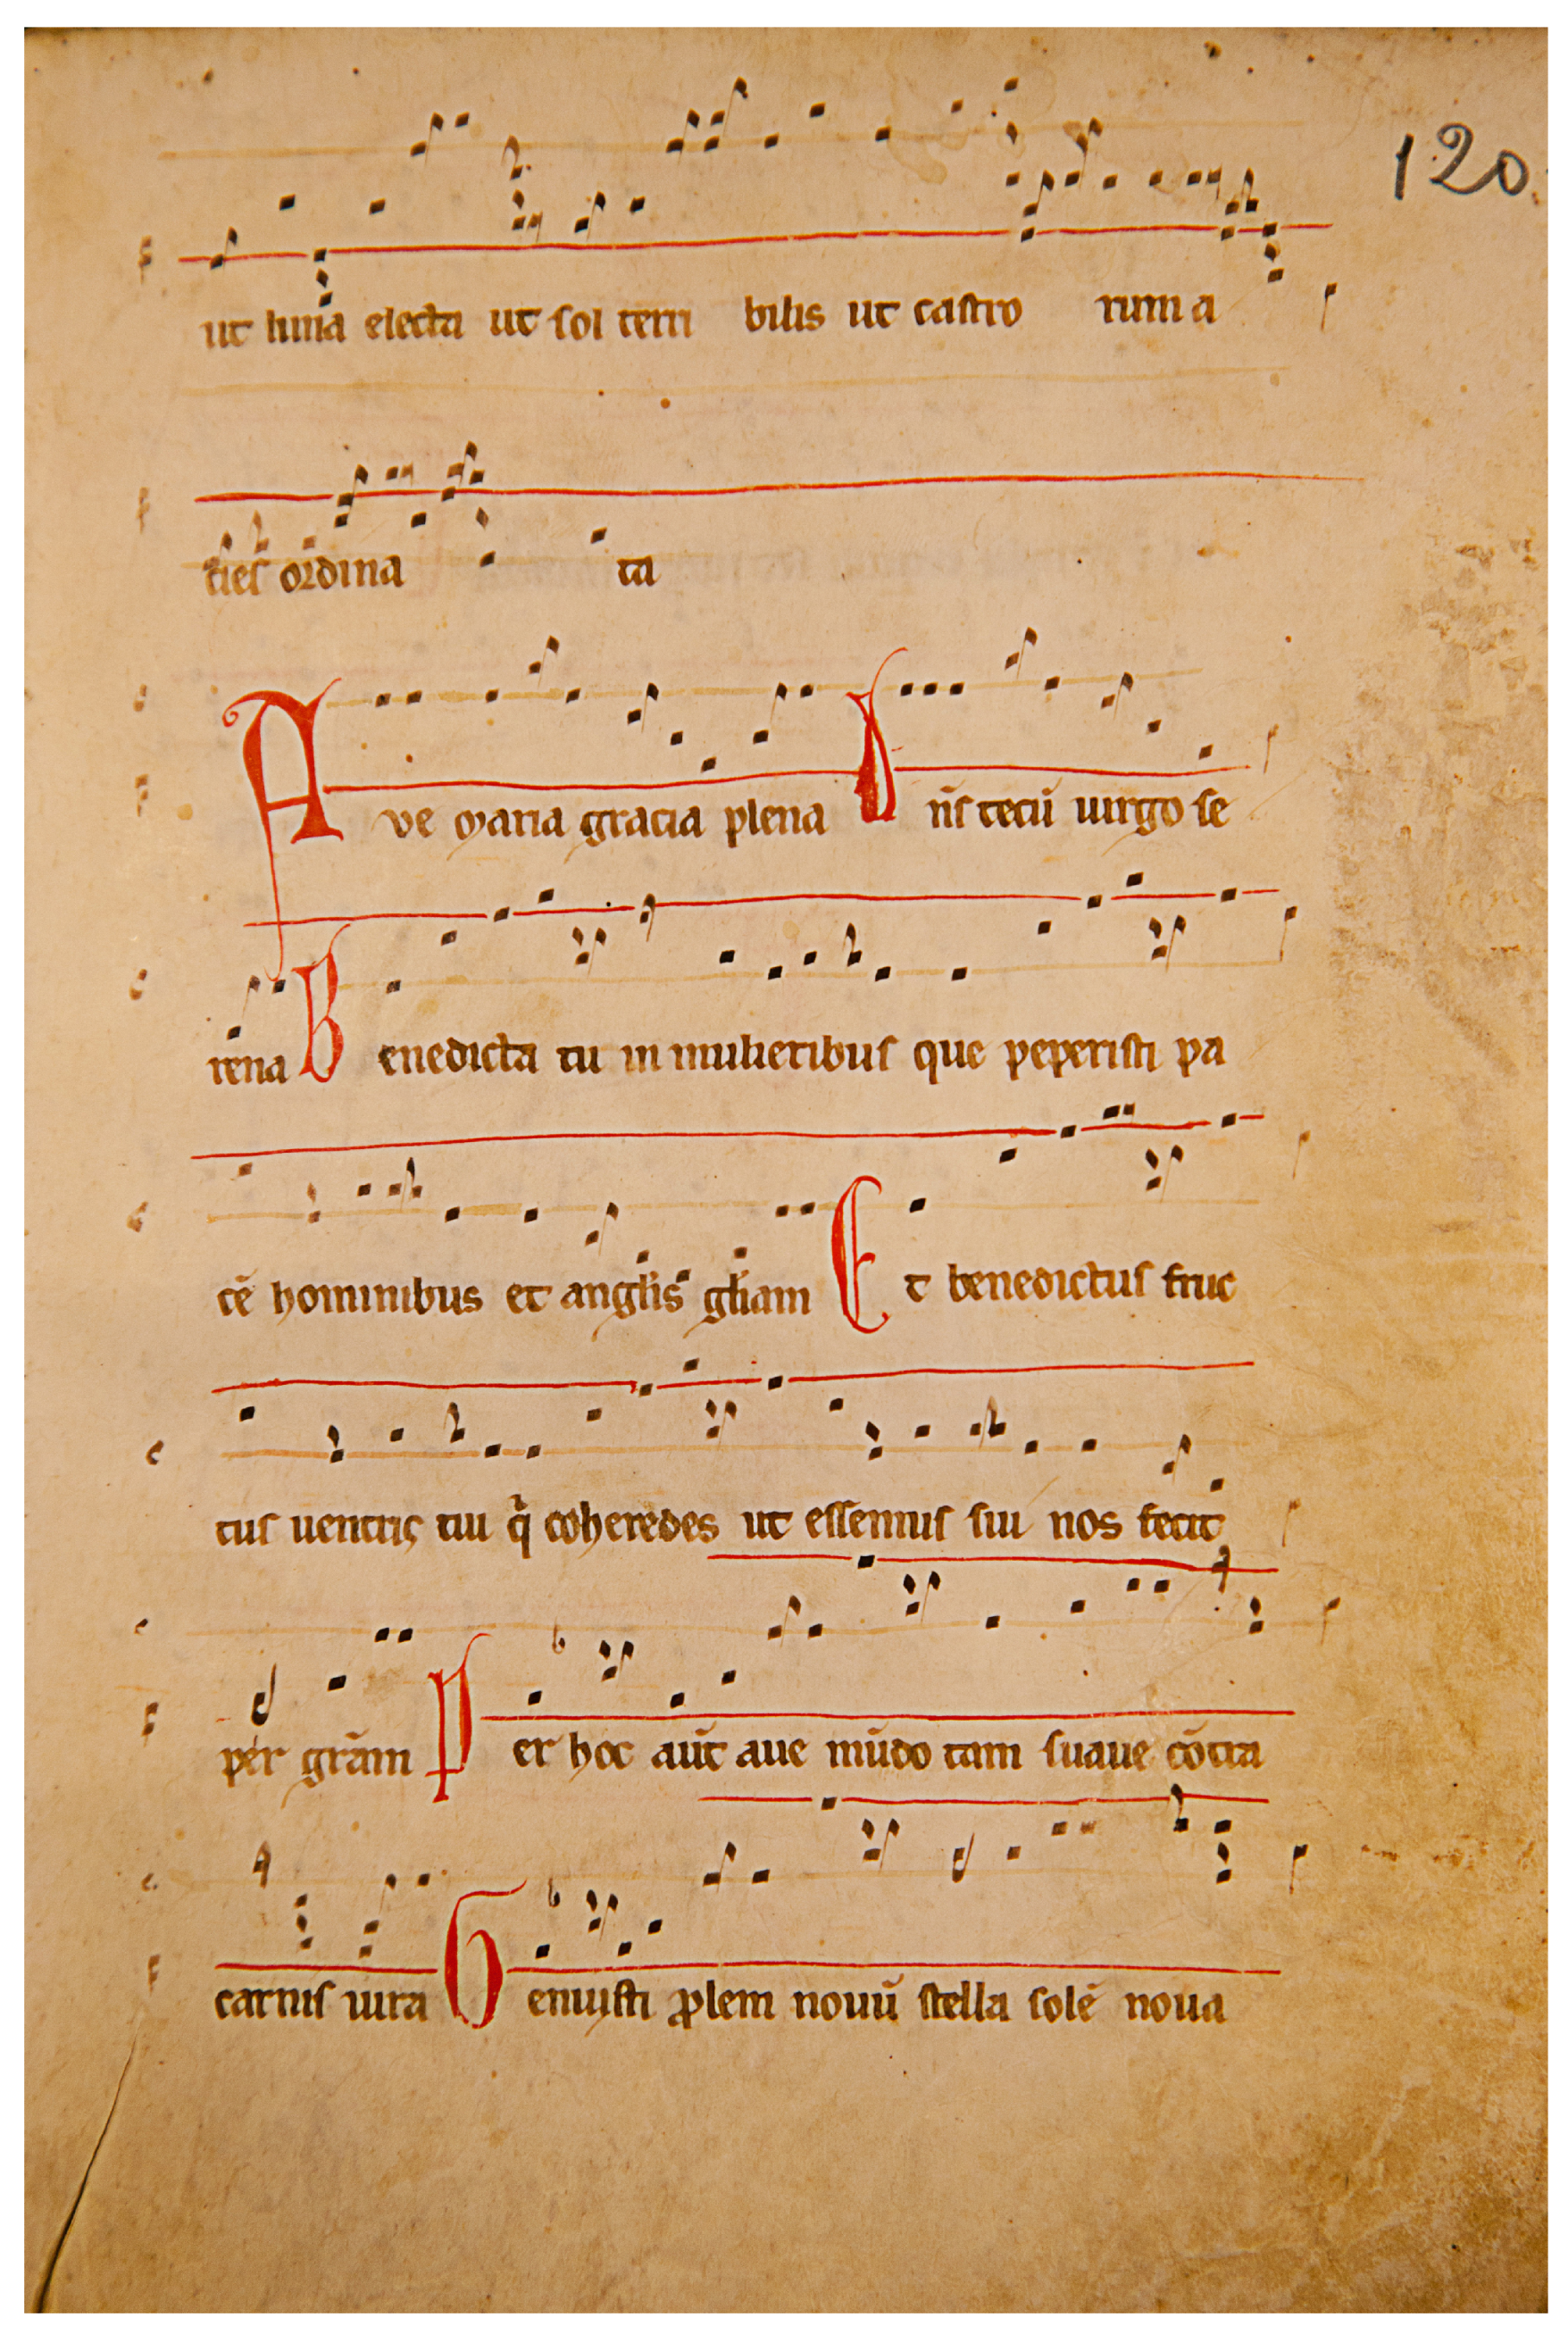 120
ut luna electa ut sol terri bilis ut castro rum a
cies ordina ta
Ave maria gracia plena Dn̄s tecū uirgo se
rena Benedicta tu in mulieribus que peperisti pa
cē hominibus et angl̄is gl̄iam Et benedictus fruc
tus uentris tui q̄ coheredes ut essemus sui nos fecit
per grām Per hoc aūt aue mūdo tam suaue cōtra
carnis iura Genuisti ꝓlem nouū stella solē noua